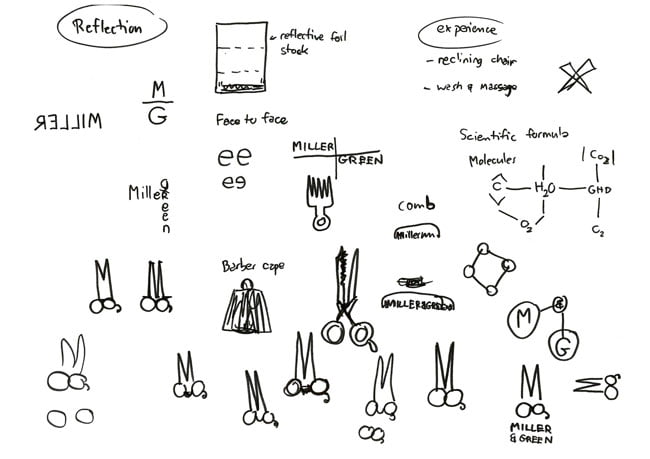 Reflection
reflective foil
stock
experience
- reclining chair
- wash & massage
M
G
MILLER
Face to face
ee
ee
MILLER
GREEN
Scientific formula
Molecules
CO2
C
H2O
GHD
O2
C2
Miller
green
comb
Barber cape
MILLER&GREEN
M
&
G
M
MILLER
& GREEN